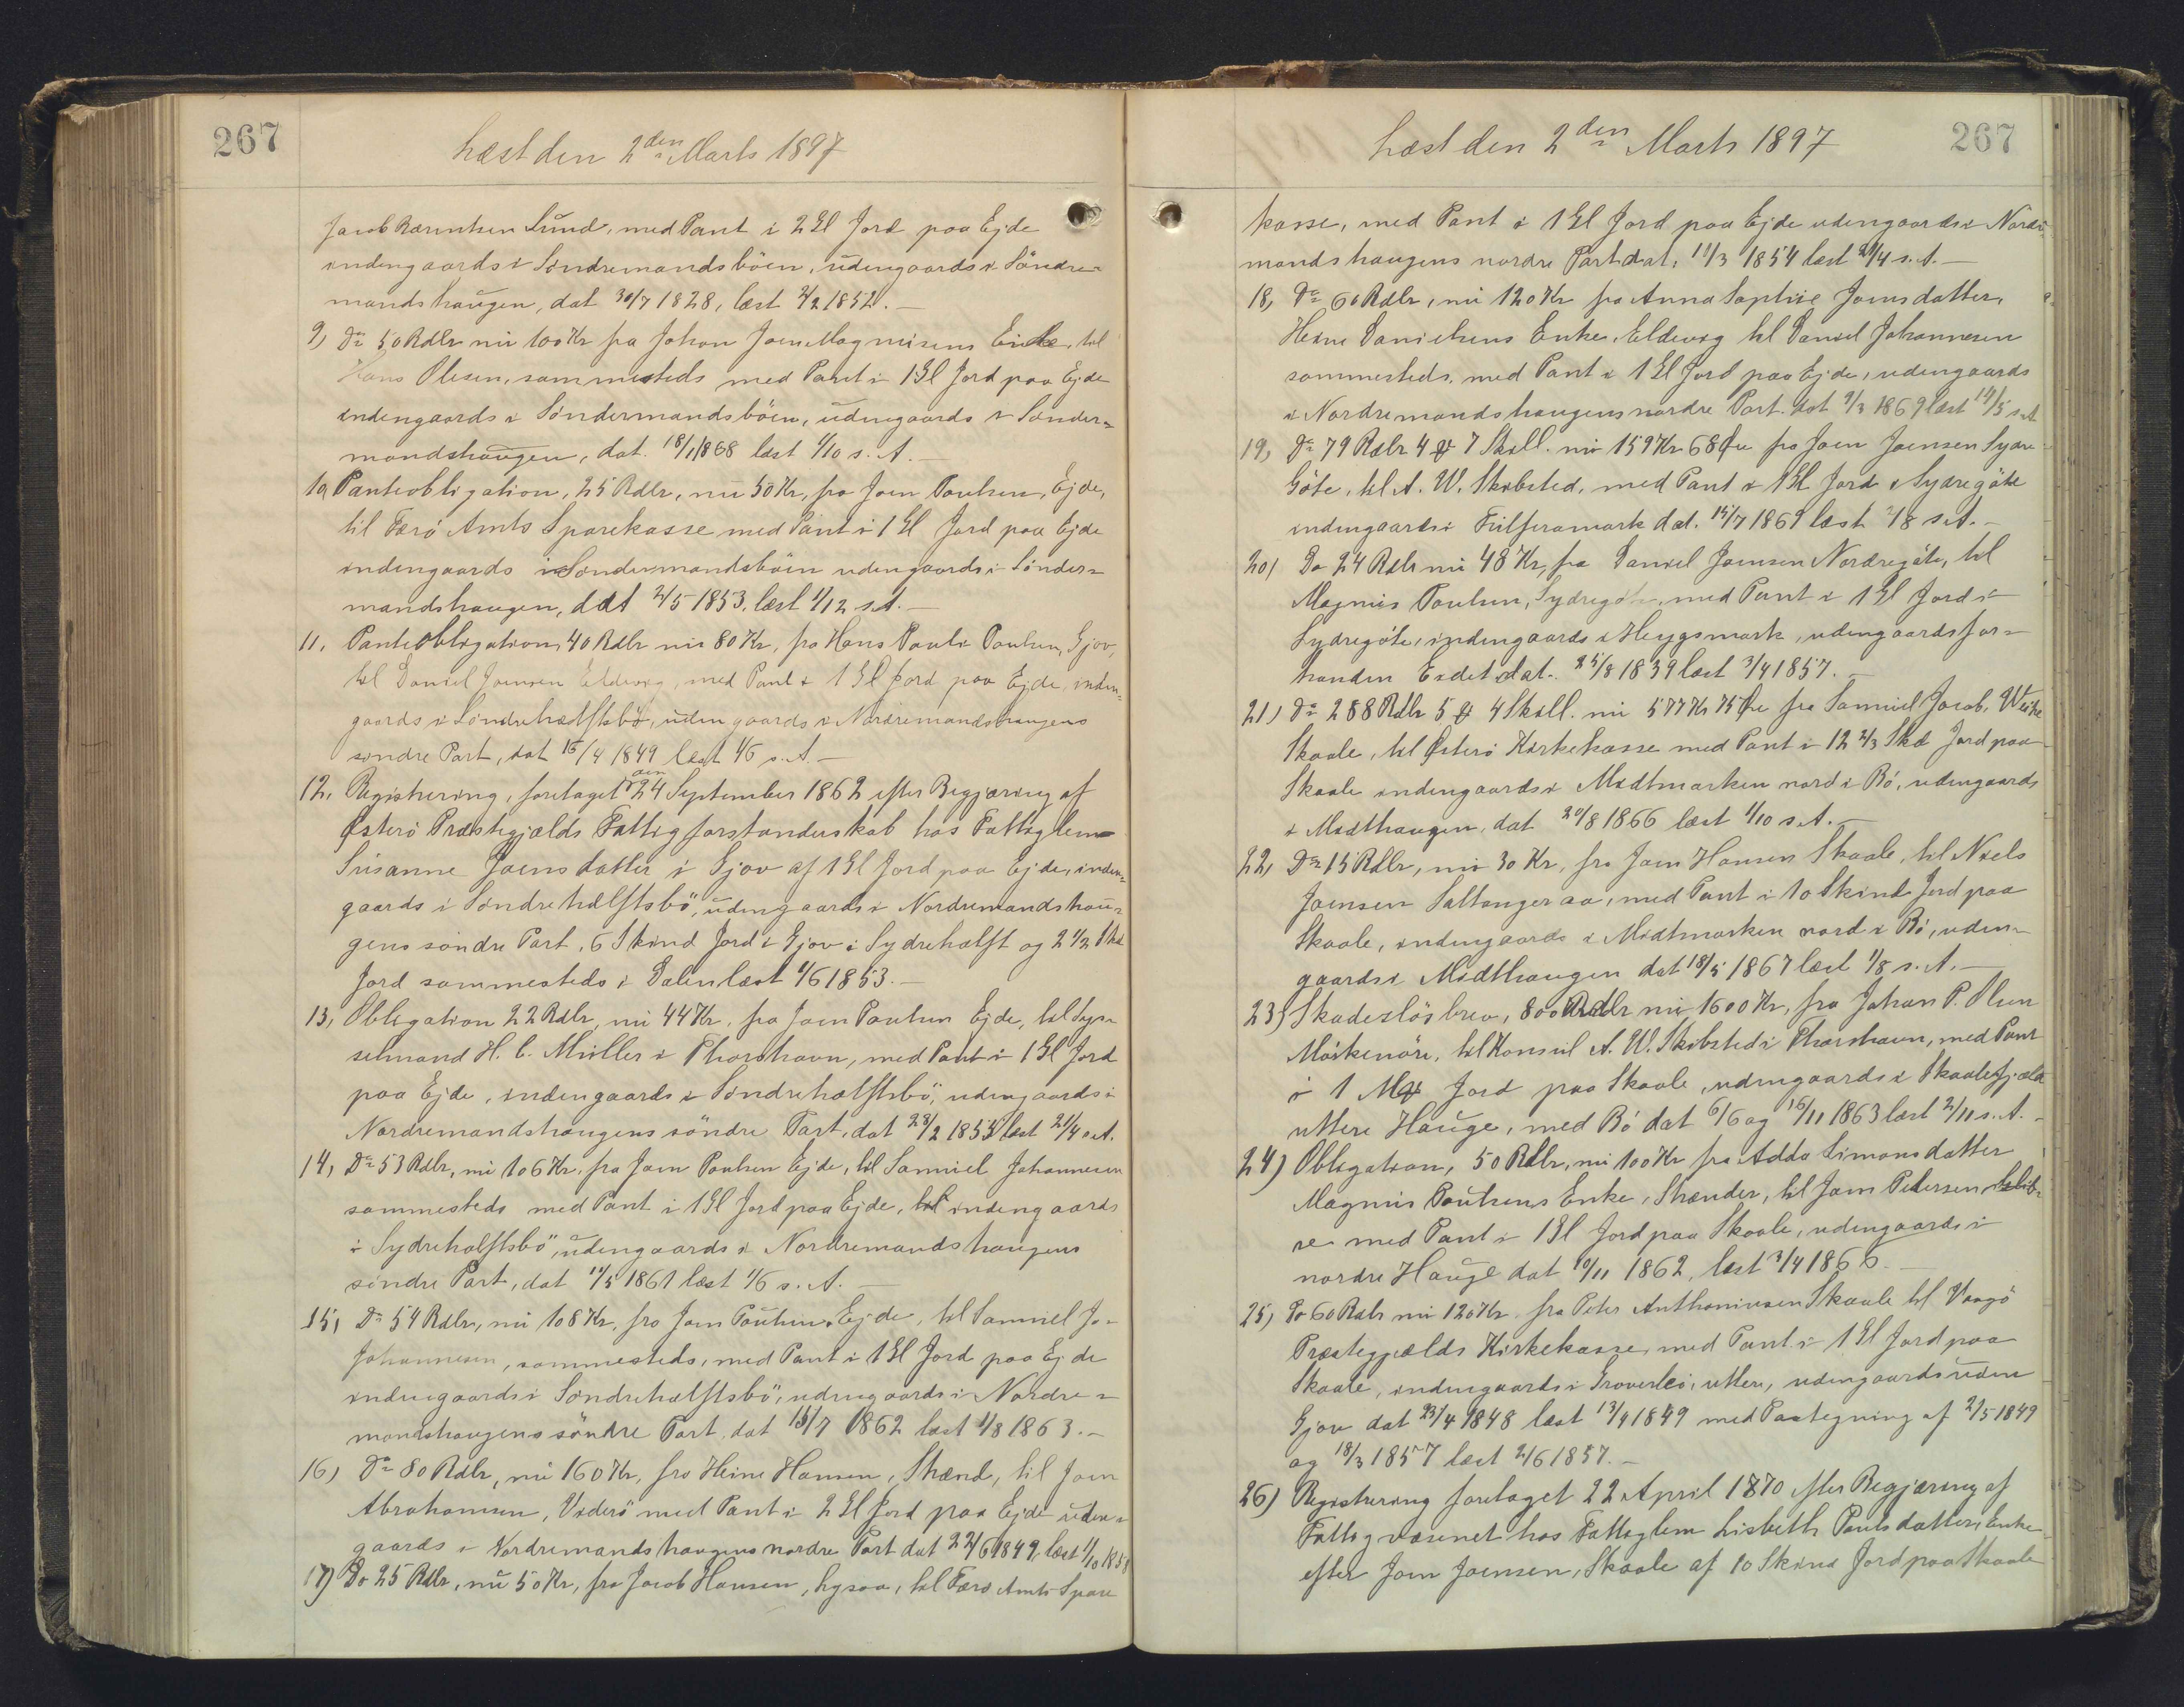 267
Læst den 2den Marts 1897
Jacob Bærentsen Lund, med Pant i 2 Gl Jord paa Ejde
indengaards i Söndremandsböen, udengaards i Söndre-
mandshaugen, dat 30/7 1828, læst 2/2 1852.—
9) Do 50 Rdlr nu 100 Kr fra Johan Joen Magnusens Enke, til
Hans Olesen, sammesteds med Pant i 1 Gl Jord paa Ejde
indengaards i Söndermandsböen, udengaards i Sönder=
mandshaugen, dat. 18/1 1868 læst 1/10 s. A.—
10, Panteobligation, 25 Rdlr, nu 50 Kr, fra Joen Poulsen, Ejde,
til Færö Amts Sparekasse med Pant i 1 Gl Jord paa Ejde
indengaards i Söndermandsböen udengaards i Sönder=
mandshaugen, dat 2/5 1853, læst 1/12 s.A.—
11. Panteobligation, 40 Rdlr nu 80 Kr, fra Hans Pauli Poulsen, Gjov,
til Daniel Joensen Eldevig, med Pant i 1 Gl Jord paa Ejde, inden=
gaards i Söndrehælftsbö, udengaards i Nordremandshaugens
söndre Part, dat 15/4 1849 læst 1/6 s. A.—
12. Registrering, foretaget den 24 September 1862 efter Begjæring af
Österö Præstegjælds Fattigforstanderskab hos Fattiglem
Susanne Joensdatter i Gjov af 1 Gl Jord paa Ejde, inden=
gaards i Söndrehælftsbö, udengaards i Nordremandshau=
gens söndre Part, 6 Skind Jord i Gjov i Sydrehælft og 2 1/2 Skd
Jord sammesteds i Dalen læst 1/6 1853.—
13, Obligation 22 Rdlr, nu 44 Kr. fra Joen Poulsen Ejde, til Sys=
selmand H. C. Müller i Thorshavn, med Pant i 1 Gl Jord
paa Ejde, indengaards i Söndrehælftsbö, udengaards i
Nordremandshaugens söndre Part, dat 28/2 1853 læst 21/4 s.A.
14, Do 53 Rdlr, nu 106 Kr. fra Joen Poulsen Ejde, til Samuel Johannesen
sammesteds med Pant i 1 Gl Jord paa Ejde, indengaards
i Sydrehalftsbö, udengaards i Nordremandshaugens
söndre Part, dat 11/5 1861 læst 1/6 s. A.—
15, Do 54 Rdlr, nu 108 Kr, fra Joen Poulsen Ejde, til Samuel Jo=
Johannesen, sammesteds, med Pant i 1 Gl Jord paa Ejde
indengaards i Söndrehælftsbö, udengaards i Nordre=
mandshaugens söndre Part, dat 15/7 1862 læst 1/8 1863.—
16) Do 80 Rdlr, nu 160 Kr, fra Heine Hansen, Strænd, til Joen
Abrahamsen, Viderö med Pant i 2 Gl Jord paa Ejde uden=
gaards i Nordremandshaugens nordre Part dat 22/6 1849, læst 1/10 1858
17) Do 25 Rdlr, nu 50 Kr, fra Jacob Hansen, Lysaa, til Færö Amts Spare
267
Læst den 2den Marts 1897
kasse, med Pant i 1 Gl Jord paa Ejde udengaards i Nordre
mandshaugens nordre Part dat. 11/3 1854 læst 21/4 s. A.—
18, Do 60 Rdlr, nu 120 Kr fra Anna Sophie Joensdatter,
Heine Danielsens Enke, Eldevig til Daniel Johannesen
sammesteds, med Pant i 1 Gl Jord paa Ejde, udengaards
i Nordremandshaugens nordre Part. dat 9/3 1869 læst 19/5 s.A
19, Do 79 Rdlr 4 Mk 7 Skill. nu 159 Kr 68 Öre fra Joen Joensen Sydre
Göte, til A. W. Skibsted, med Pant i 1 Gl Jord i Sydregöte
indengaards i Fulferamark dat. 15/7 1869 læst 2/8 s.A.—
20) Do 24 Rdlr nu 48 Kr, fra Daniel Joensen Nordregöte, til
Magnus Poulsen, Sydregöte, med Pant i 1 Gl Jord i
Sydregöte, indengaards i Heygsmark, udengaards for=
handen Eidet dat. 25/8 1839 læst 3/4 1857.—
21) Do 288 Rdlr 5 Mk 4 Skill. nu 577 Kr 75 Öre fra Samuel Jacob. Weihe
Skaale, til Österö Kirkekasse med Pant i 12 2/3 Skd Jord paa
Skaale indengaards i Midtmarken nord i Bö, udengaards
i Midthaugen, dat 20/8 1866 læst 1/10 s.A.—
22, Do 15 Rdlr, nu 30 Kr, fra Joen Hansen Skaale, til Niels
Joensen Saltangeraa, med Pant i 10 Skind Jord paa
Skaale, indengaards i Midtmarken nord i Bö, uden=
gaards i Midthaugen dat 18/5 1867 læst 1/8 s. A.—
23) Skadeslösbrev, 800 Rdlr nu 1600 Kr, fra Johan P. Olsen
Morskenöre, til Konsul A. W. Skibsted i Thorshavn, med Pant
i 1 Mk Jord paa Skaale, udengaards i Skaalefjæld
uttere Hauge, med Bö dat 6/6 og 15/11 1863 læst 2/11 s. A.—
24) Obligation, 50 Rdlr, nu 100 Kr fra Adda Simonsdatter
Magnus Poulsens Enke, Strænder, til Joen Petersen Glib-
re med Pant i 1 Gl Jord paa Skaale, udengaards i
nordre Hauge dat 10/11 1862, læst 3/4 1866.—
25, Do 60 Rdlr nu 120 Kr. fra Peter Anthoniusen Skaale til Vaagö
Præstegjælds Kirkekasse, med Pant i 1 Gl Jord paa
Skaale, indengaards i Groverlei, uttere, udengaards uden
Gjov dat 23/4 1848 læst 13/4 1849 med Paategning af 2/5 1849
og 18/3 1857 læst 2/6 1857.—
26) Registrering foretaget 22 April 1870 efter Begjæring af
Fattigvæsenet hos Fattiglem Lisbeth Poulsdatter, Enke
efter Joen Joensen, Skaale af 10 Skind Jord paa Skaale